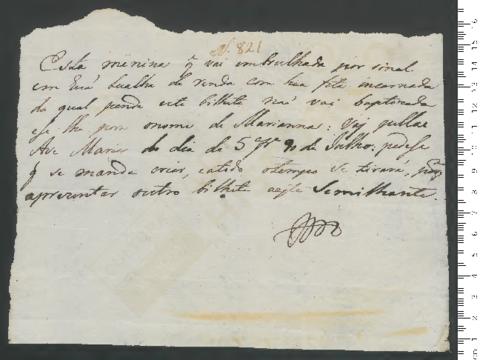 N. 821
Esta menina q vai imbrulhada por sinal
em huá tualha de renda com húa fita incarnada
da qual pende este bilhete naó vai baptizada
e se lhe pora o nome de Marianna: Vaj pellas
Ave Marias do dia de 5 fr.ª 20 de Julho, pedese
q se mande criar, e a todo o tempo se tirará,
aprezentar outro bilhete a este Semilhante.